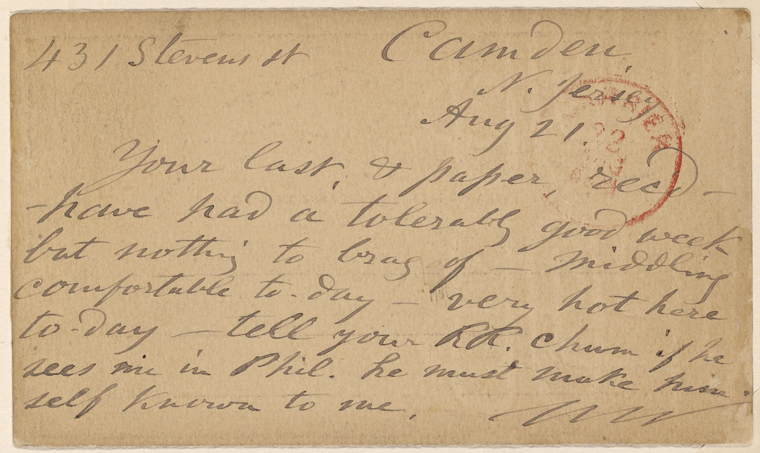 431 Stevens st Camden,
N. Jersey
Aug 21.
CARRIER
22
Your last, & paper, rec'd –
– have had a tolerably good week
but nothing to brag of – middling
comfortable to-day – very hot here
to-day – tell your RR. chum if he
sees me in Phil. he must make him-
self known to me.
WW